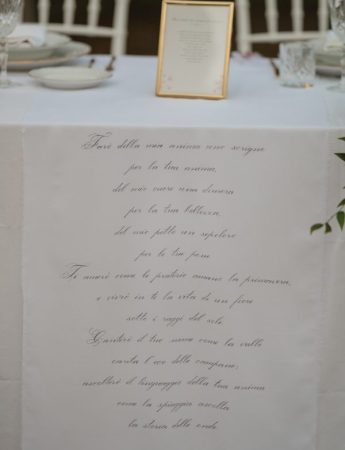 Farò della mia anima uno scrigno
per la tua anima,
del mio cuore una dimora
per la tua bellezza,
del mio petto un sepolcro
per le tue pene.
Ti amerò come le praterie amano la primavera,
e vivrò in te la vita di un fiore
sotto i raggi del sole.
Canterò il tuo nome come la valle
canta l'eco delle campane;
ascolterò il linguaggio della tua anima
come la spiaggia ascolta
la storia delle onde.